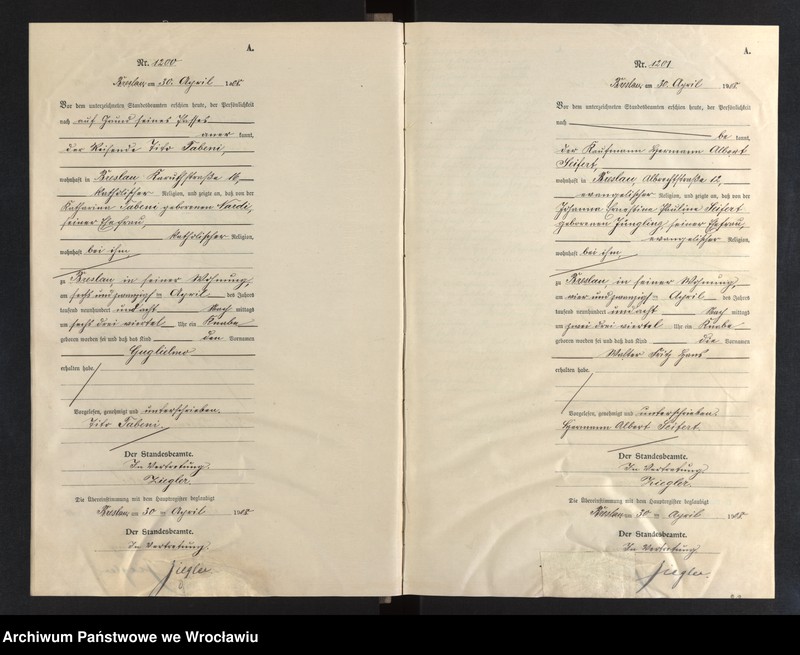 A.
Nr. 1200
Breslau, am 30. April 1908
Vor dem unterzeichneten Standesbeamten erschien heute, der Persönlichkeit
nach auf Grund seines Passes
aner kannt,
der Reisende Tito Fabeni,
wohnhaft in Breslau
katholischer Religion, und zeigte an, daß von der
Katharina Fabeni geborenen Nardi,
seiner Ehefrau,
katholischer Religion,
wohnhaft bei ihm,
zu Breslau, in seiner Wohnung,
am sechs und zwanzigsten April des Jahres
tausend neunhundert und acht Nach mittags
um sechs drei viertel Uhr ein Knabe
geboren worden sei und daß das Kind den Vornamen
Guglielmo
erhalten habe.
Vorgelesen, genehmigt und unterschrieben.
Tito Fabeni.
Der Standesbeamte.
In Vertretung.
Ziegler.
Die Übereinstimmung mit dem Hauptregister beglaubigt
Breslau, am 30 ten April 1908
Der Standesbeamte.
In Vertretung.
Ziegler
A.
Nr. 1201
Breslau, am 30. April 1908
Vor dem unterzeichneten Standesbeamten erschien heute, der Persönlichkeit
nach
be kannt,
der Kaufmann Hermann Albert
Seifert,
wohnhaft in Breslau, Albrechtstraße 12,
evangelischer Religion, und zeigte an, daß von der
Johanna Ernestine Pauline Seifert
geborenen Jüngling, seiner Ehefrau,
evangelischer Religion,
wohnhaft bei ihm,
zu Breslau, in seiner Wohnung,
am vier und zwanzigsten April des Jahres
tausend neunhundert und acht Nach mittags
um zwei drei viertel Uhr ein Knabe
geboren worden sei und daß das Kind die Vornamen
Walter Fritz Hans
erhalten habe.
Vorgelesen, genehmigt und unterschrieben.
Hermann Albert Seifert.
Der Standesbeamte.
In Vertretung.
Ziegler.
Die Übereinstimmung mit dem Hauptregister beglaubigt
Breslau, am 30 ten April 1908
Der Standesbeamte.
In Vertretung.
Ziegler.
Archiwum Państwowe we Wrocławiu